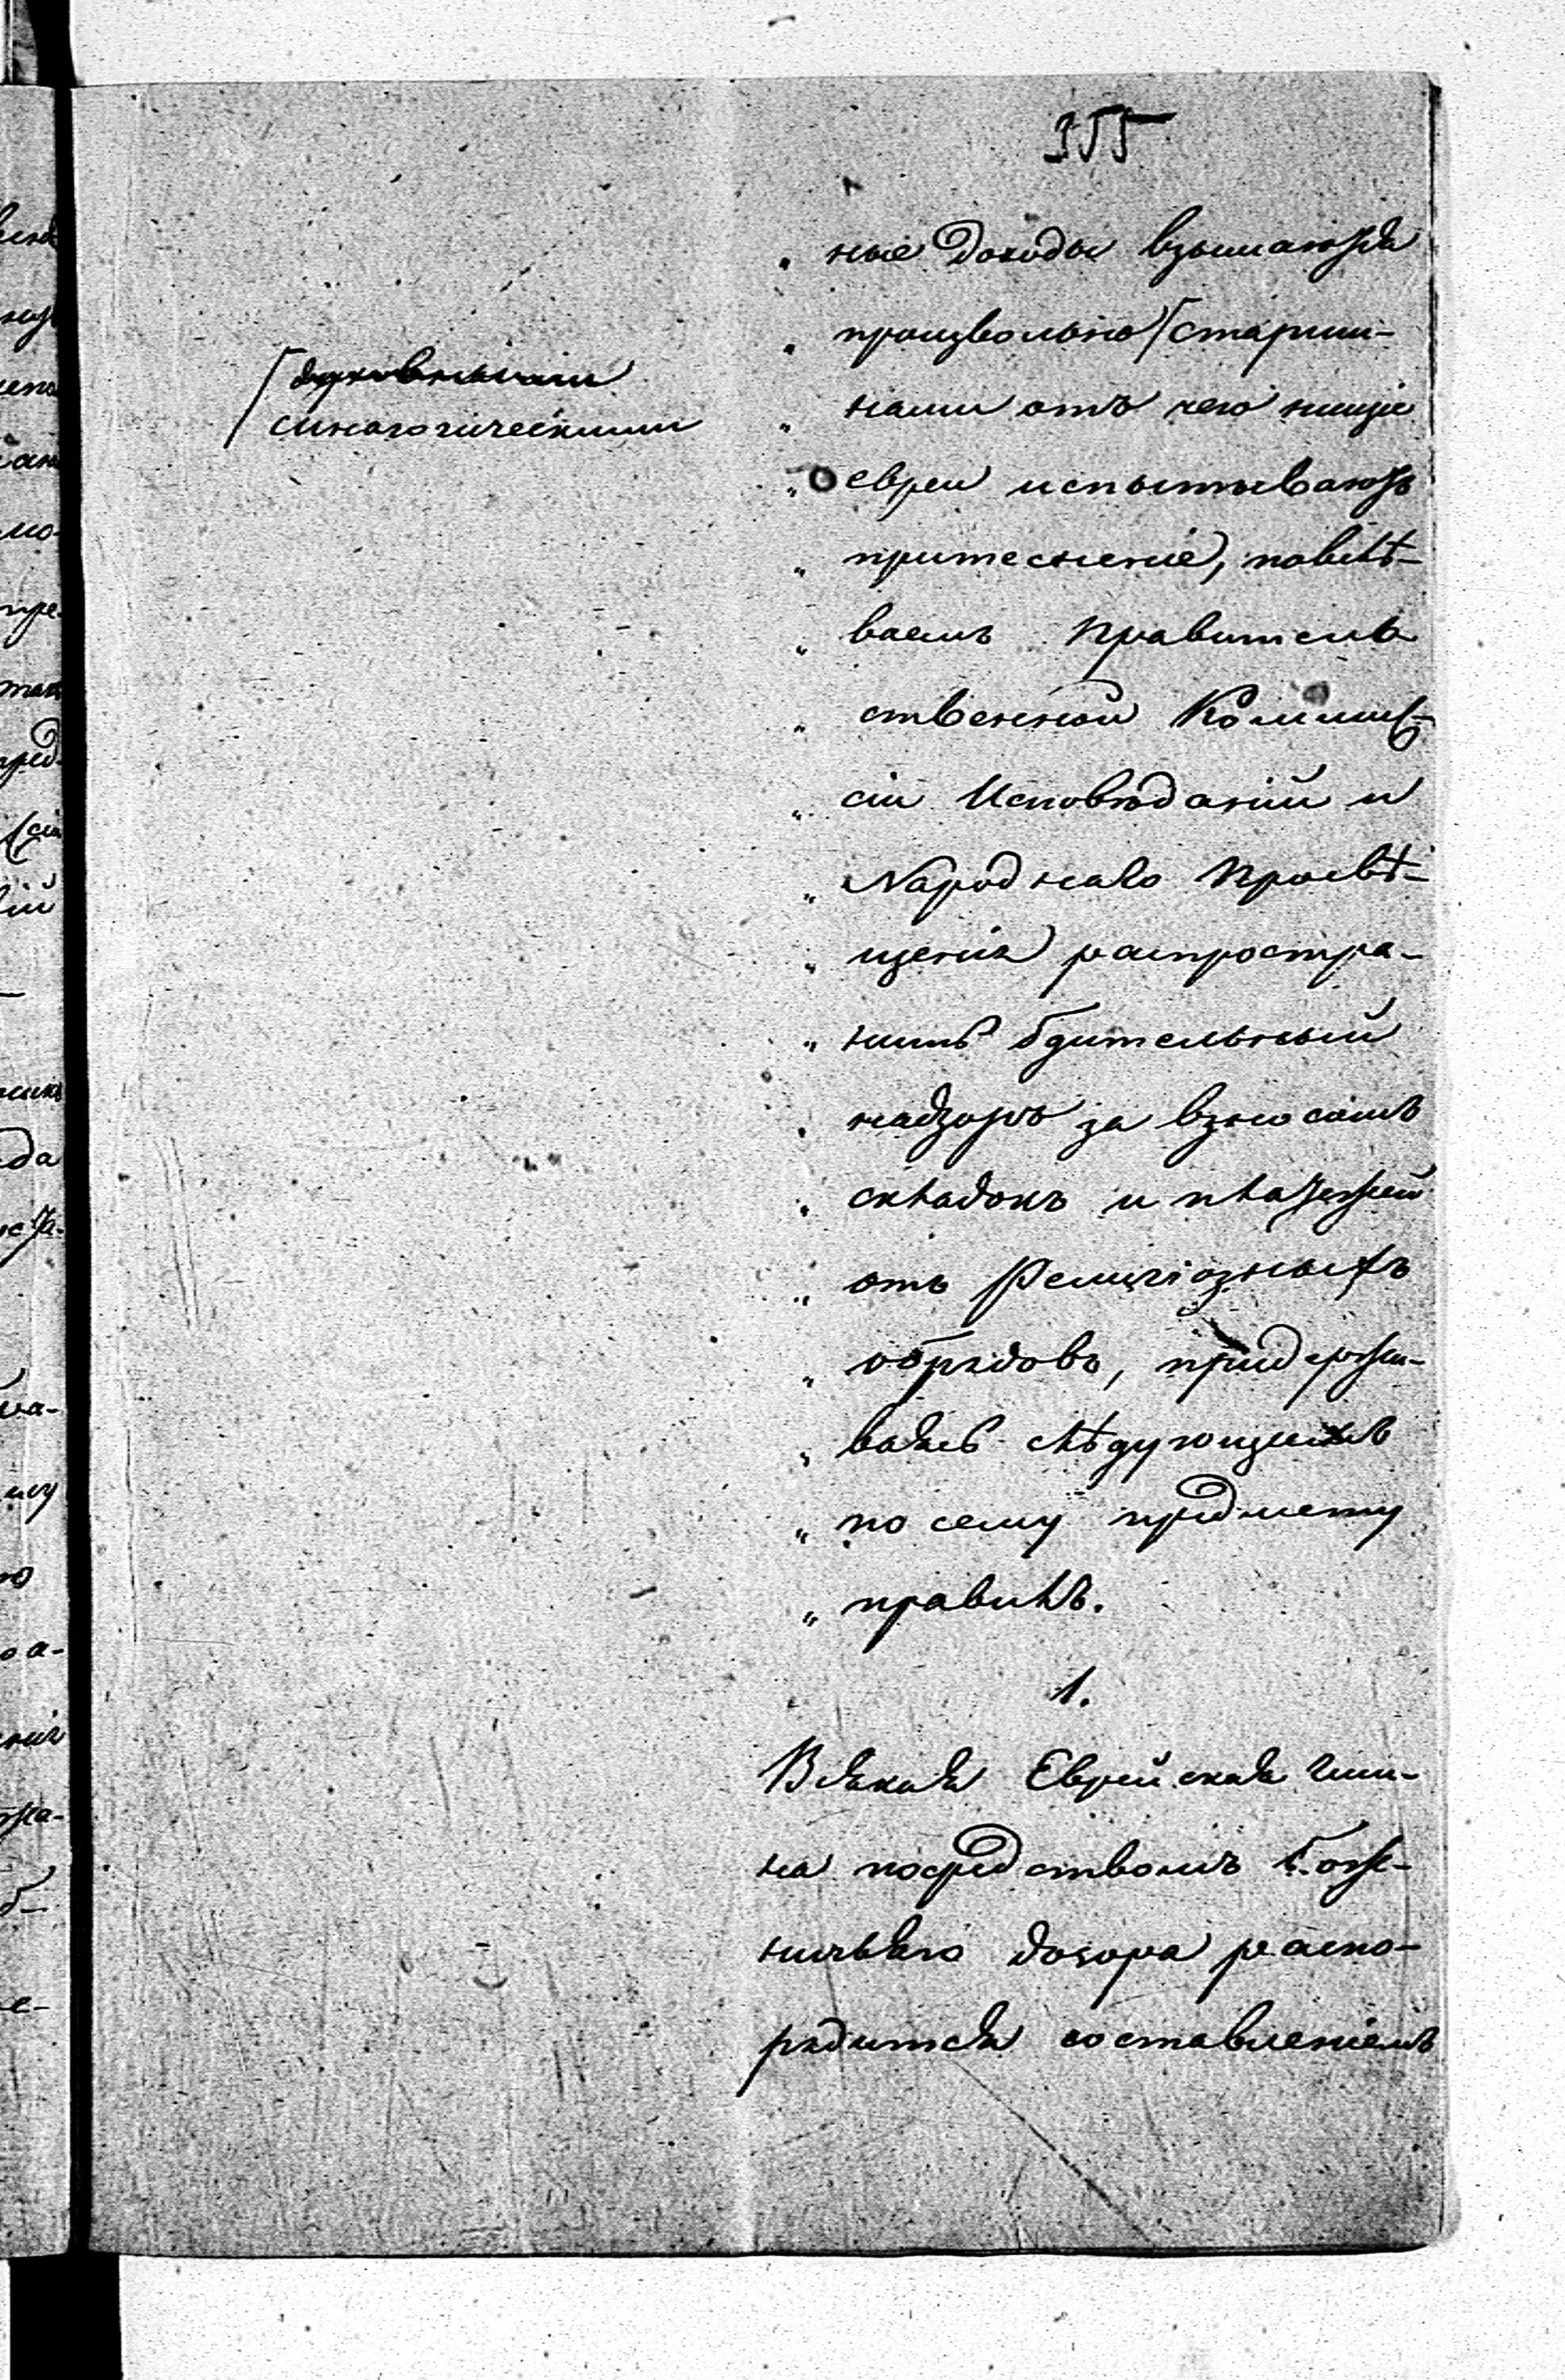 355
„ ные доходы взымаются
„ произвольно старши-
духовными
синагогическими
„ нами отъ чего нищіе
„ евреи испытываютъ
„ притесненіе, повелѣ-
ваемъ Правитель
„ ственной Коммис-
„ сіи Исповѣданій и
„ Народнаго Просвѣ-
„ щенія распростра-
„ нить бдительный
„ надзоръ за взносомъ
„ складокъ и платежей
„ отъ Религіозныхъ
„ обрядовъ, придержи-
„ ваясь слѣдующихъ
„ по сему предмету
„ правилъ.
1.
Всякая Еврейская Гми-
на посредствомъ Бож-
ничьяго дозора распо-
рядится составленіемъ